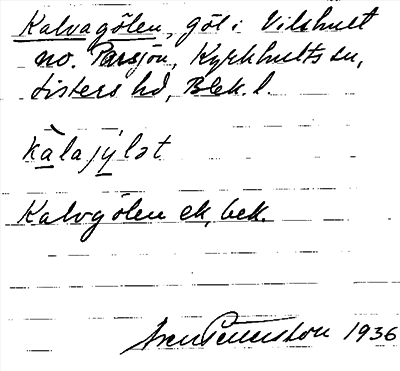 Kalvagölen, göl i Vilshult
no. Parsjön, Kyrkhults sn,
Listers hd, Blek. l.
kalajylət
Kalvgölen ek, bek.
Sven Petersson 1936